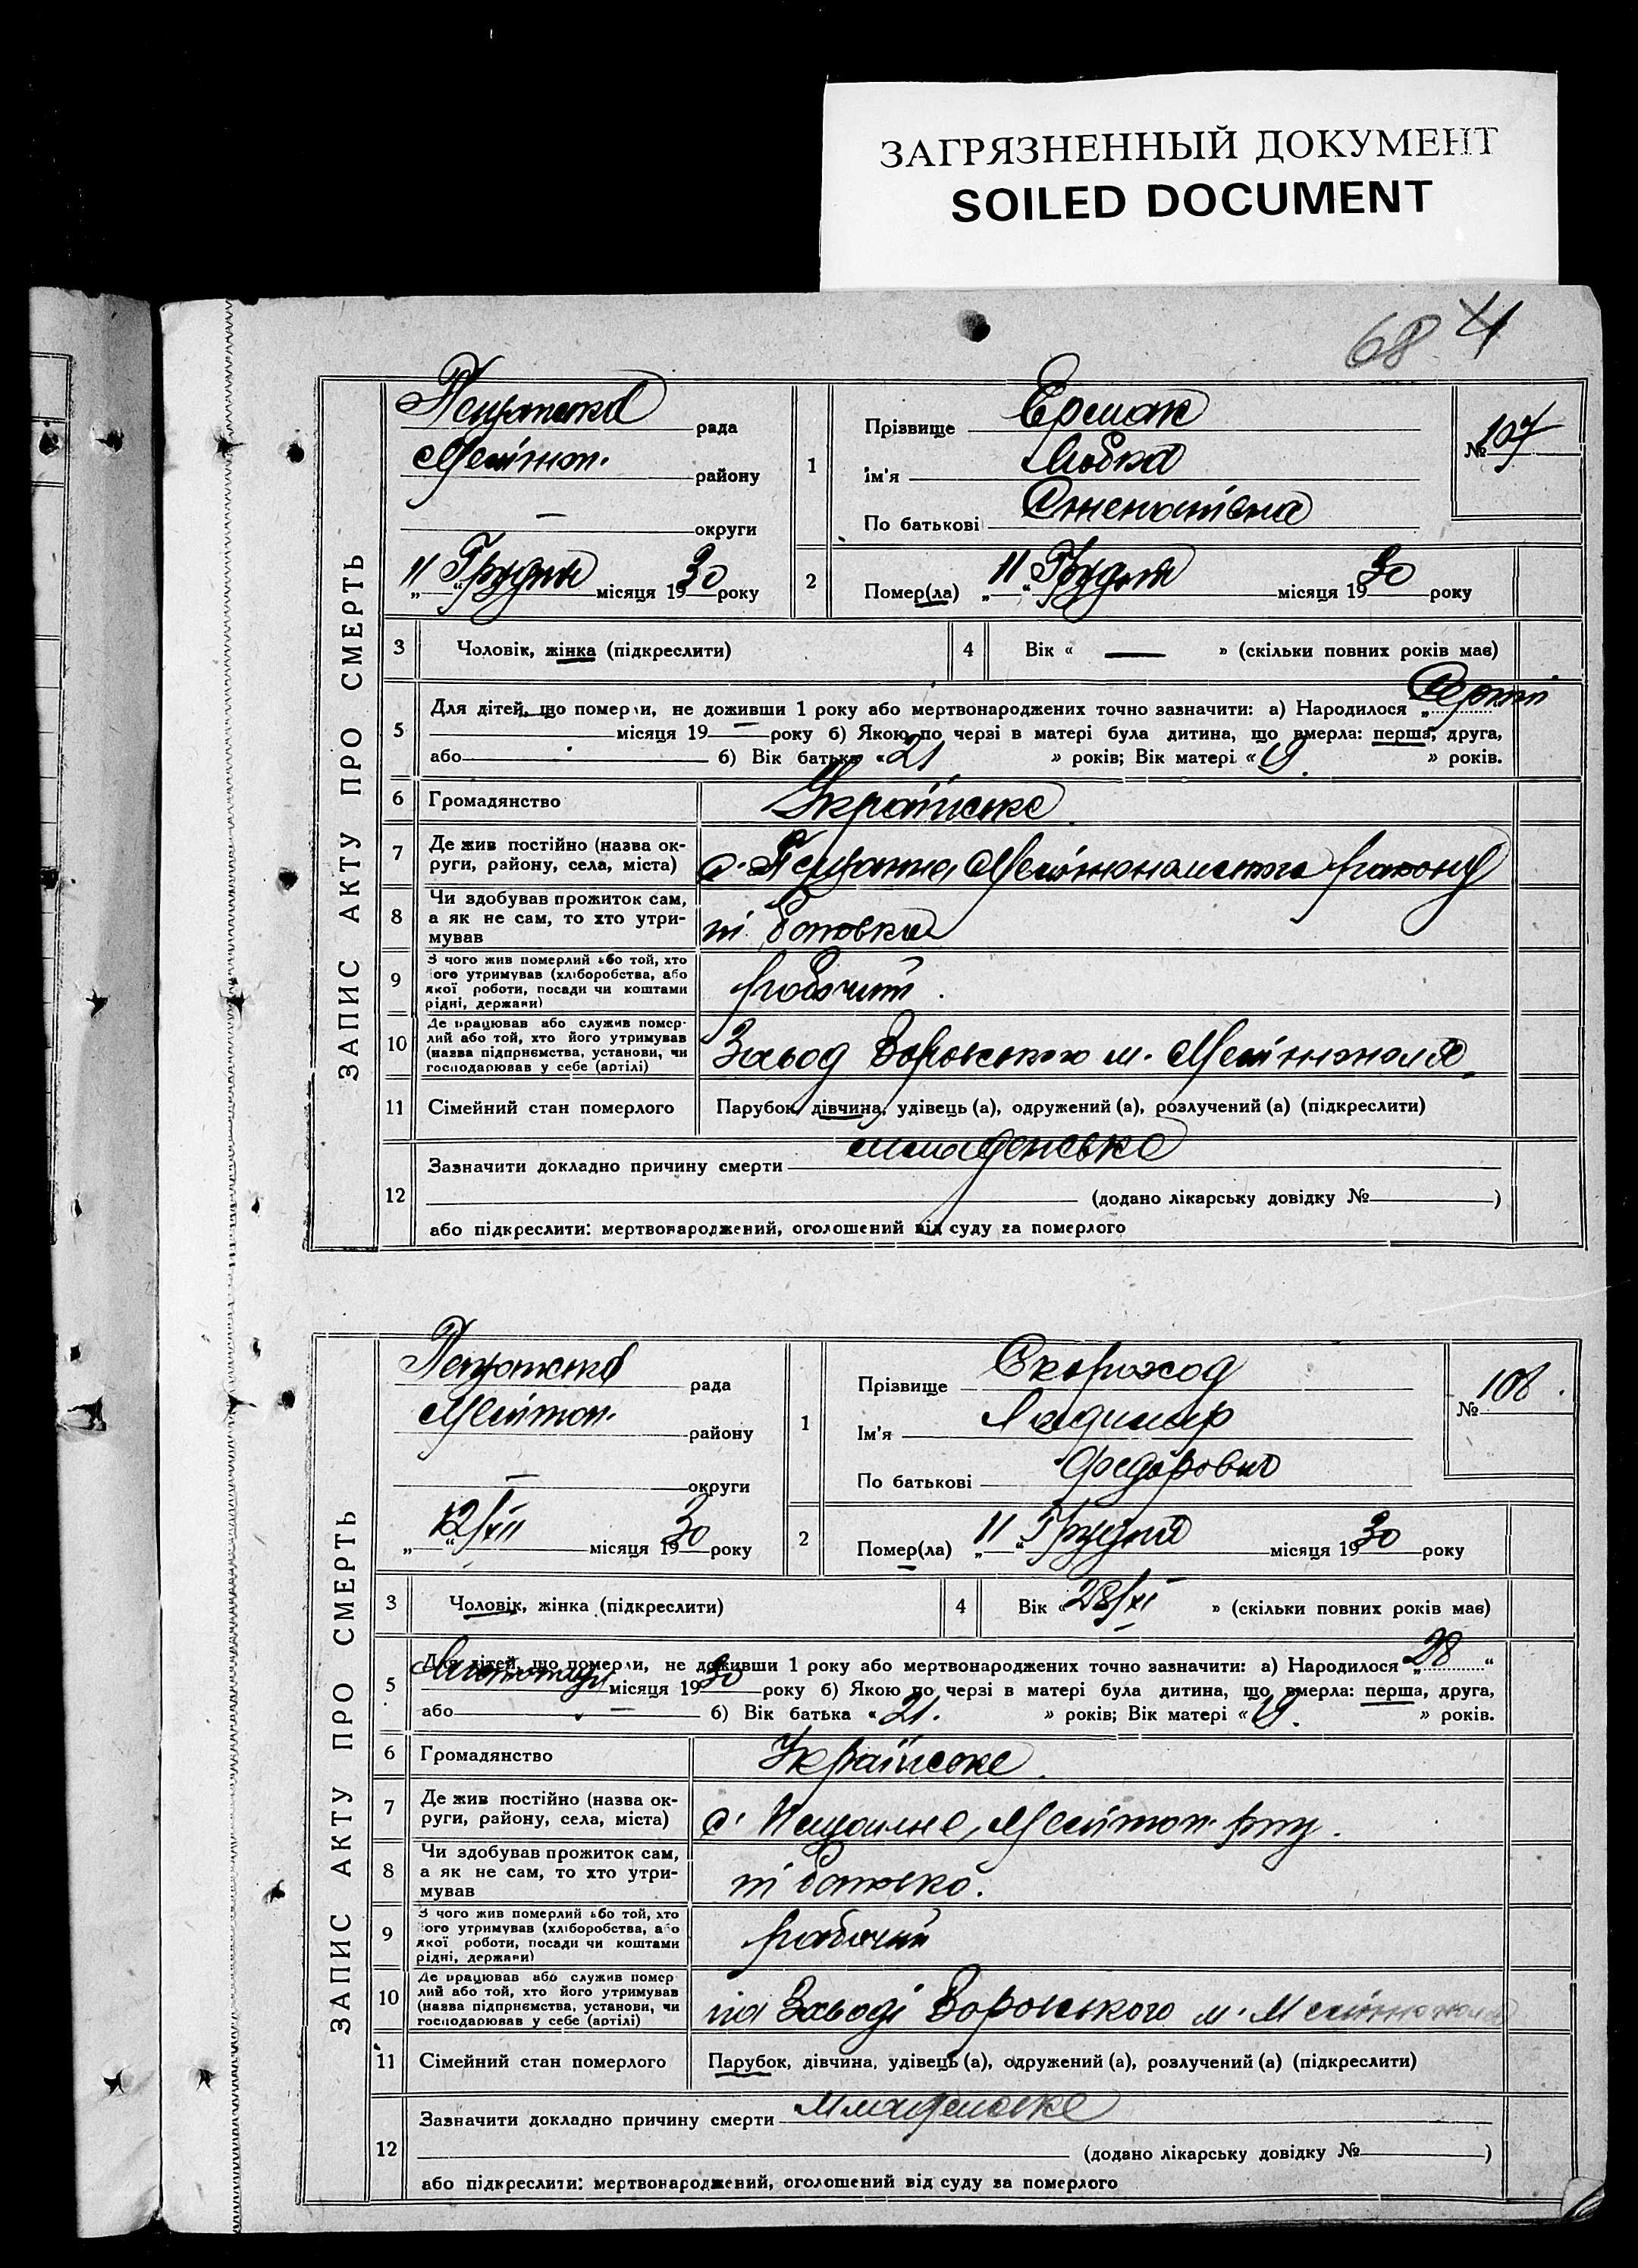 ЗАГРЯЗНЕННЫЙ ДОКУМЕНТ
SOILED DOCUMENT
68 4
ЗАПИС АКТУ ПРО СМЕРТЬ
Піщанська рада
Меліton. району
— округи
„11“ Грудня місяця 1930 року
1 Прізвище Ермак
Ім'я Любка
По батькові
№ 107
2 Помер(ла) „11“ Грудня місяця 1930 року
3 Чоловік, жінка (підкреслити)
4 Вік « — » (скільки повних років має)
5 Для дітей, що померли, не доживши 1 року або мертвонароджених точно зазначити: а) Народилося „
місяця 19 — року б) Якою по черзі в матері була дитина, що вмерла: перша, друга,
або б) Вік батька « 21 » років; Вік матері « 19 » років.
6 Громадянство Українське
7 Де жив постійно (назва округи, району, села, міста) с. Піщанка, Мелітопольського району
8 Чи здобував прожиток сам, а як не сам, то хто утримував ні батько
9 З чого жив померлий або той, хто його утримував (хліборобства, або якої роботи, посади чи коштами рідні, держави) робочий
10 Де працював або служив померлий або той, хто його утримував (назва підприємства, установи, чи господарював у себе (артілі) Завод Воровського м. Мелітополя
11 Сімейний стан померлого Парубок, дівчина, удівець (а), одружений (а), розлучений (а) (підкреслити)
12 Зазначити докладно причину смерти младенське
(додано лікарську довідку № )
або підкреслити: мертвонароджений, оголошений від суду за померлого
ЗАПИС АКТУ ПРО СМЕРТЬ
Піщанська рада
Меліtop. району
— округи
„12/XII“ місяця 1930 року
1 Прізвище Скороход
Ім'я Владимир
По батькові Федорович
№ 108.
2 Помер(ла) „11“ Грудня місяця 1930 року
3 Чоловік, жінка (підкреслити)
4 Вік « 28/XI » (скільки повних років має)
5 Для дітей, що померли, не доживши 1 року або мертвонароджених точно зазначити: а) Народилося „28“
Листопаду місяця 1930 року б) Якою по черзі в матері була дитина, що вмерла: перша, друга,
або — б) Вік батька « 21. » років; Вік матері « 19. » років.
6 Громадянство Українське
7 Де жив постійно (назва округи, району, села, міста) с. Піщанне, Мелітоп. р-ну.
8 Чи здобував прожиток сам, а як не сам, то хто утримував ні батько.
9 З чого жив померлий або той, хто його утримував (хліборобства, або якої роботи, посади чи коштами рідні, держави) рабочий
10 Де працював або служив померлий або той, хто його утримував (назва підприємства, установи, чи господарював у себе (артілі) на Заводі Воровського м. Мелітополя
11 Сімейний стан померлого Парубок, дівчина, удівець (а), одружений (а), розлучений (а) (підкреслити)
12 Зазначити докладно причину смерти Младенське
(додано лікарську довідку № )
або підкреслити: мертвонароджений, оголошений від суду за померлого